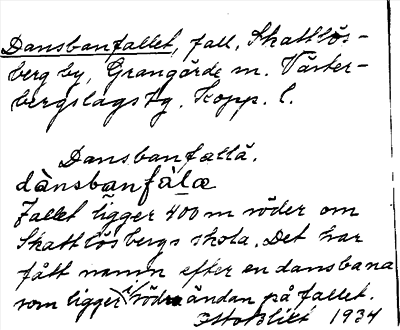 Dansbanfallet, fall, Skattlös-
berg by, Grangärde sn. Väster-
bergslags tg. Kopp. l.
Dansbanfallä.
dànsbanfàlæ
Fallet ligger 400 m söder om
Skattlösbergs skola. Det har
fått namn efter en dansbana
som ligger i södra ändan på fallet.
Otto Blixt 1934